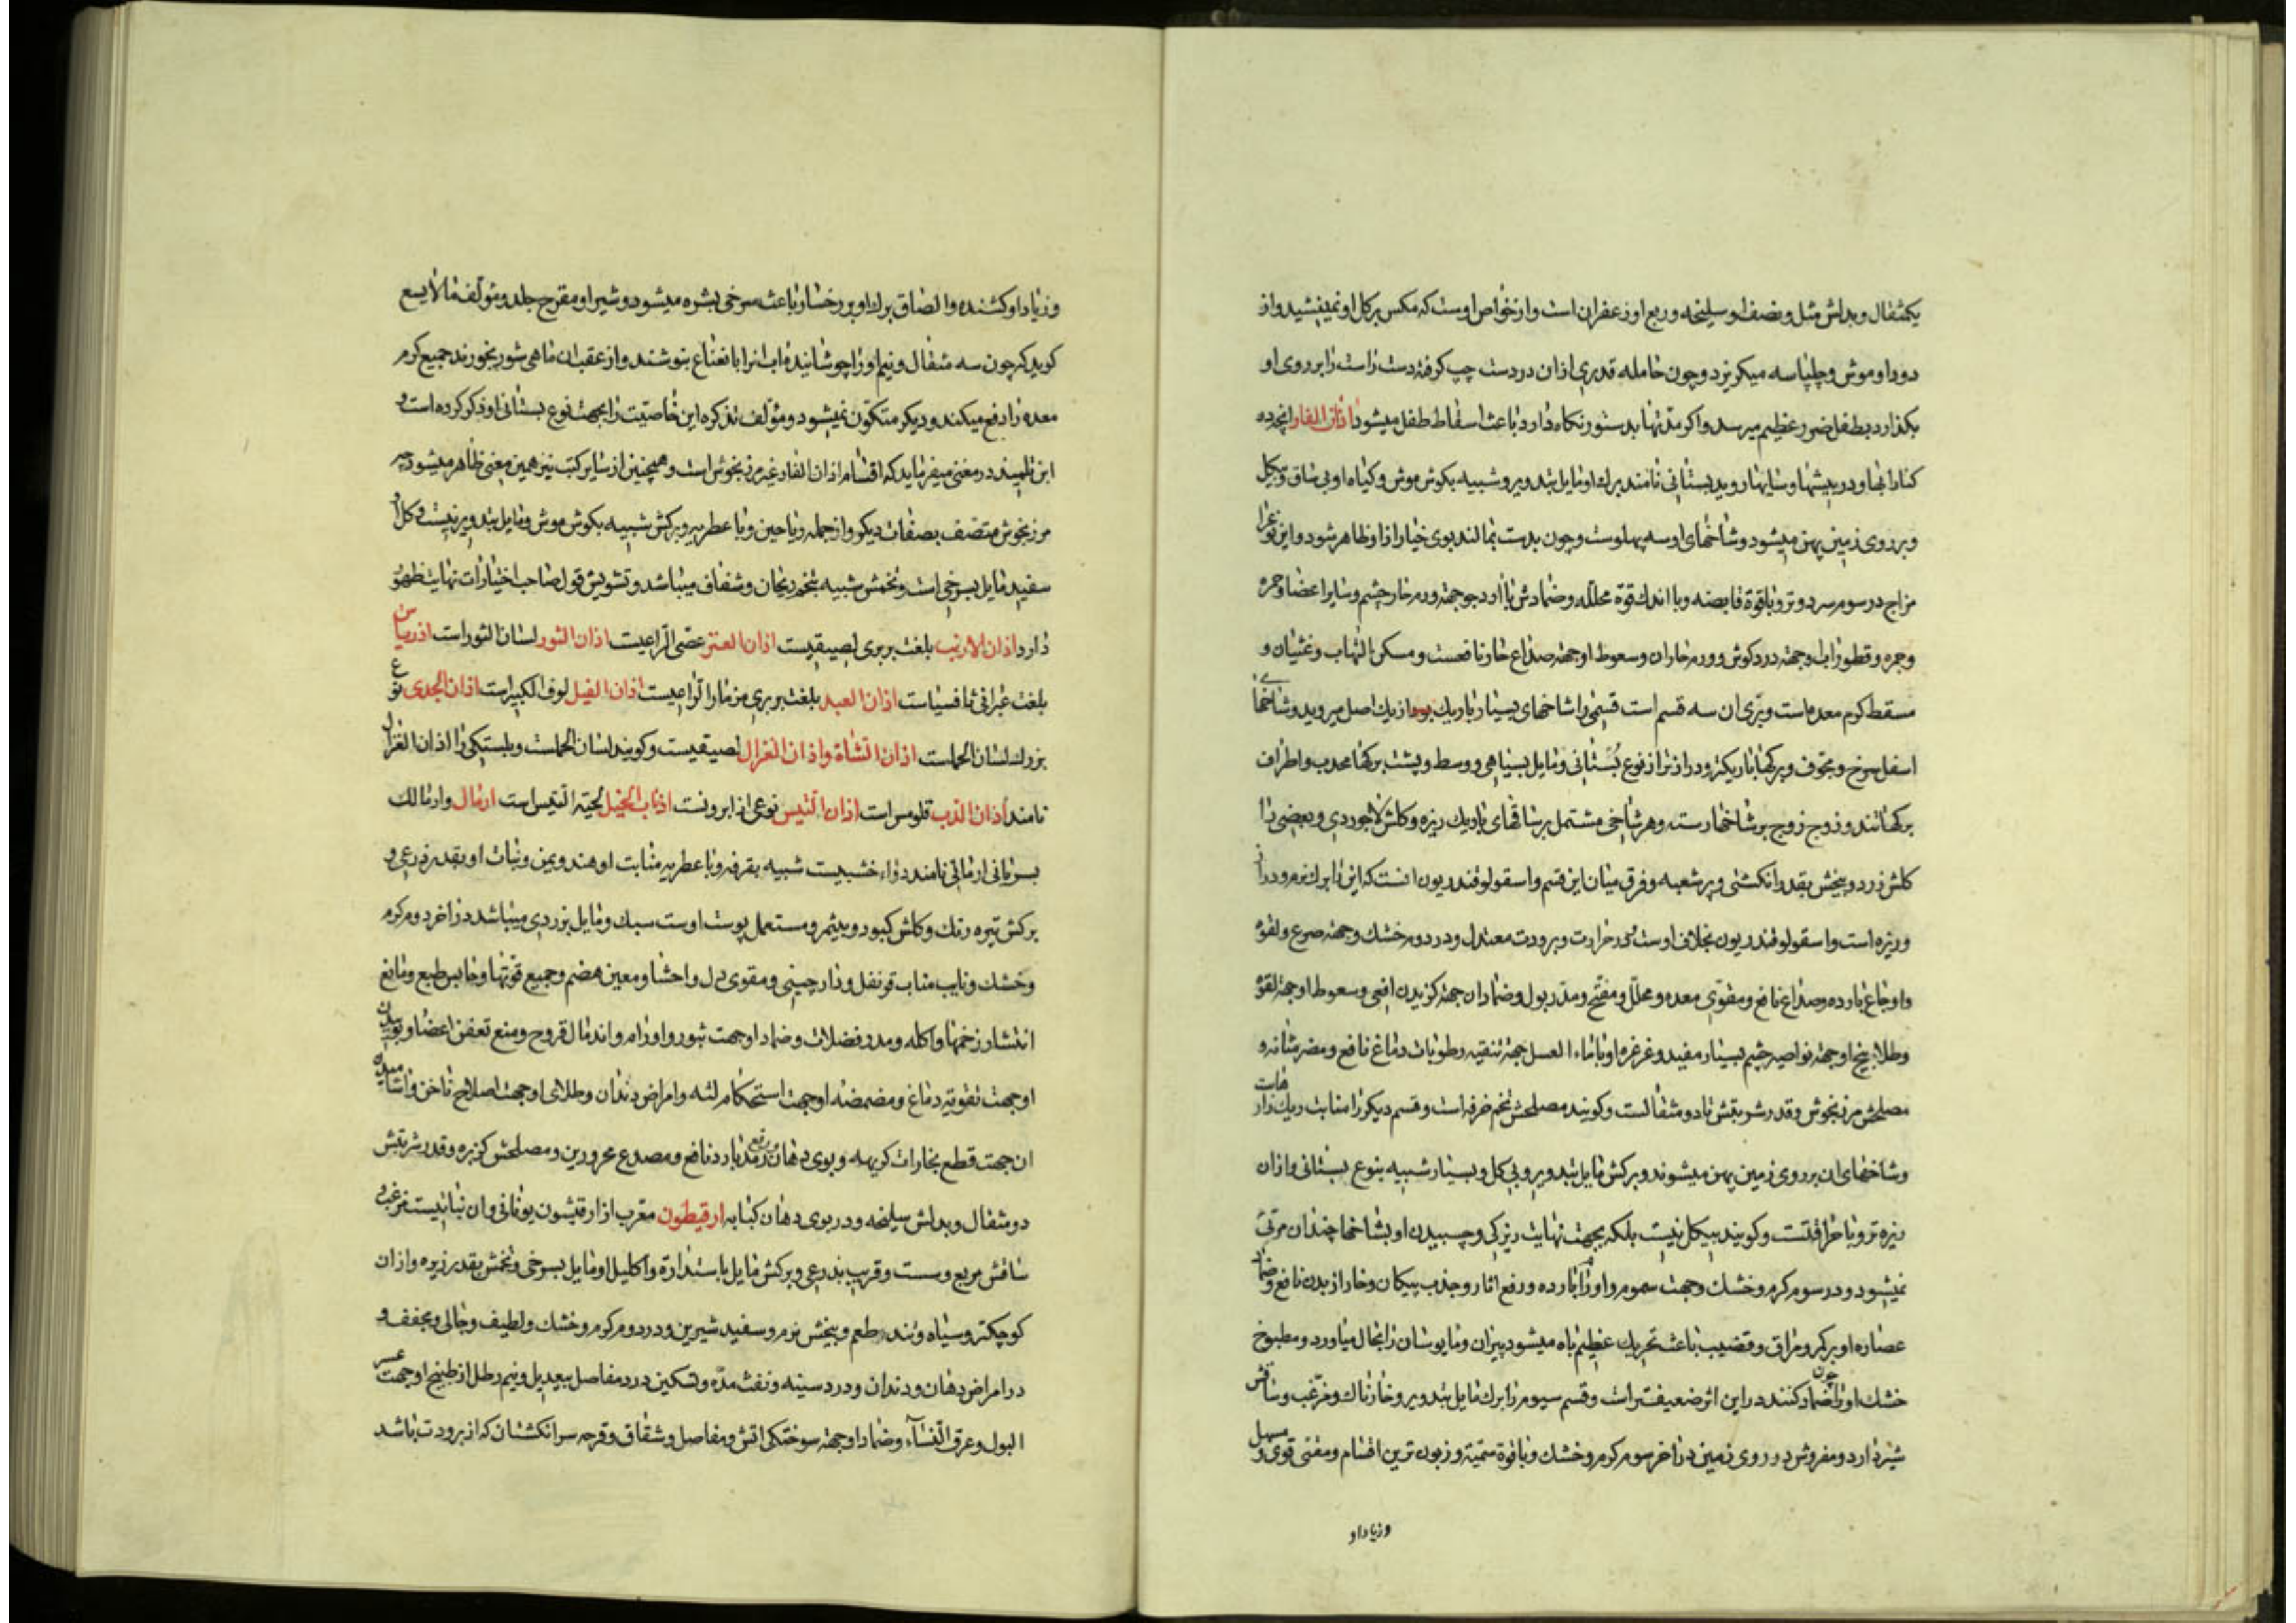 یکمثقال و بدلش مثل و نصف او سلیخه و ربع او زعفران است و از خواص اوست که مکس برکل او نمینشیند و از
دود او موش و چلپاسه میکریزد و چون حامله قدری ازان در دست چپ کرفته دست راست را بر روی او
بکذارد بطفل ضرر عظیم میرسد و اکر مدتها بدستور نکاه دارد باعث اسقاط طفل میشود اذان الفار انچه در
کنار ابها و در بیشها و سایها روید بستانی نامند برك او مایل بتدویر و شبیه بکوش موش و کیاه او بی ساق و بیکل
و بر روی زمین پهن میشود و شاخهای او سه پهلوست و چون بدست بمالند بوی خیار از او ظاهر شود و این نوع را
مزاج در سوم سرد و تر و با قوة قابضه و با اندك قوة محلله و ضمادش با ارد جو جهة ورم حار چشم و سایر اعضا و حمره
و جمره و قطور اب او جهة درد کوش و ورم حار ان و سعوط او جهة صداع حار نافعست و مسکن التهاب و غثیان و
مسقط کرم معده است و بری ان سه قسم است قسمی را شاخهای بسیار باریك بود از یك اصل میروید و شاخها
اسفل سرخ و مجوف و برکها باریکتر و درازتر از نوع بستانی و مایل بسیاهی و وسط و پشت برکها محدب و اطراف
برکها تند و زوج زوج بر شاخها رسته و هر شاخی مشتمل بر ساقهای باریك ریزه و کلش لاجوردی و بعضی را
کلش زرد و بیخش بقدر انکشتی و پر شعبه و فرق میان این قسم و اسقولوفندریون انست که این را برك نرم و دراز
و ریزه است و اسقولوفندریون بخلاف اوست در حرارت و برودت معتدل و در دوم خشك و جهة صرع و لقوه
و اوجاع بارده و صداع نافع و مقوی معده و محلل و مفتح و مدر بول و ضماد ان جهة کزیدن افعی و سعوط او جهة لقوه
و طلاء بیخ او جهة نواصیر چشم بسیار مفید و غرغره او با ماء العسل جهة تنقیه رطوبات دماغ نافع و مضر مثانه و
مصلحش مرزنجوش و قدر شربتش تا دو مثقالست و کویند مصلحش تخم خرفه است و قسم دیکر را منابت ریك زار هاست
و شاخهای ان بر روی زمین پهن میشوند و برکش مایل بتدویر و بی کل و بسیار شبیه بنوع بستانی و ازان
ریزه تر و با حرافتست و کویند بیکل نیست بلکه بجهت نهایت ریزکی و چسبیدن او بشاخها چندان مرئی
نمیشود و در سوم کرم و خشك و جهت سموم و اورام بارده و رفع اثار و جذب پیکان و خار از بدن نافع و ضماد
عصاره او بر کمر و مراق و قضیب باعث تحریك عظیم باه میشود پیران و مایوسان را بحال میاورد و مطبوخ
خشك او را چون ضماد کنند در این اثر ضعیفتر است و قسم سیوم را برك مایل بتدویر و خارناك و مزغب و ساقش
شیر دارد و مفروش در روی زمین در اخر سوم کرم و خشك و با قوة سمیة و زبون ترین اقسام و مقئی قوی و مسهل
و زیاد او
و زیاد او کشنده و الصاق برك او بر رخسار باعث سرخی بشره میشود و شیر او مقرح جلد و مؤلف مالایسع
کوید که چون سه مثقال و نیم او را جوشانیده اب انرا با نعناع بنوشند و از عقب ان ماهی شور بخورند جمیع کرم
معده را دفع میکند و دیکر متکون نمیشود و مؤلف تذکره این خاصیت را بجهت نوع بستانی او ذکر کرده است و
ابن تلمیذ در مغنی میفرماید که اقسام اذان الفار غیر مرزنجوش است و همچنین از سایر کتب نیز همین معنی ظاهر میشود چه
مرزنجوش متصف بصفات دیکر و از جمله ریاحین و با عطریه و برکش شبیه بکوش موش و مایل بتدویر نیست و کل او
سفید مایل بسرخی است و تخمش شبیه بتخم ریحان و شفاف میباشد و تشویش قول صاحب اختیارات نهایت ظهور
دارد اذان الارنب بلغت بربری لصیقیست اذان العنز عصی الراعیست اذان الثور لسان الثور است اذریاس
بلغت عبرانی ثافسیاست اذان العبد بلغت بربری مزمار الراعیست اذان الفیل لوف الکبیر است اذان الجدی نوع
بزرك لسان الحملست اذان الشاة و اذان الغزال لصیقیست و کویند لسان الحملست و بلسکی را اذان الغزال
نامند اذان الدب قلومس است اذان التیس نوعی از ابرونست اذناب الخیل لحیة التیس است ارمال و ارمالك
بسریانی ارمالی نامند دواء خشبیست شبیه بقرفه و با عطریه منابت او هند و یمن و نبات او بقدر ذرعی و
برکش تیره رنك و کلش کبود و بیثمر و مستعمل پوست اوست سبك و مایل بزردی میباشد در اخر دوم کرم
و خشك و نایب مناب قرنفل و دارچینی و مقوی دل و احشا و معین هضم و جمیع قوتها و حابس طبع و مانع
انتشار زخمها و اکله و مدر فضلات و ضماد او جهت بثور و اورام و اندمال قروح و منع تعفن اعضا و بوییدن
او جهت تقویة دماغ و مضمضه او جهت استحکام لثه و امراض دندان و طلای او جهت اصلاح ناخن و اشامیدن
ان جهت قطع بخارات کریهه و بوی دهان و رفع رمد بارد نافع و مصدع محرورین و مصلحش کزبره و قدر شربتش
دو مثقال و بدلش سلیخه و در بوی دهان کبابه ارقیطون معرب از ارقیشون یونانی و ان نباتیست مزغب و
ساقش مربع و سست و قریب بذرعی و برکش مایل باستدارة و اکلیل او مایل بسرخی و تخمش بقدر زیره و ازان
کوچکتر و سیاه و تند طعم و بیخش نرم و سفید شیرین و در دوم کرم و خشك و لطیف و جالی و مجفف و
در امراض دهان و دندان و درد سینه و نفث مده و تسکین درد مفاصل بیعدیل و نیم رطل از طبیخ او جهت عسر
البول و عرق النساء و ضماد او جهة سوختکی اتش و مفاصل و شقاق و قرحه سر انکشتان که از برودت باشد